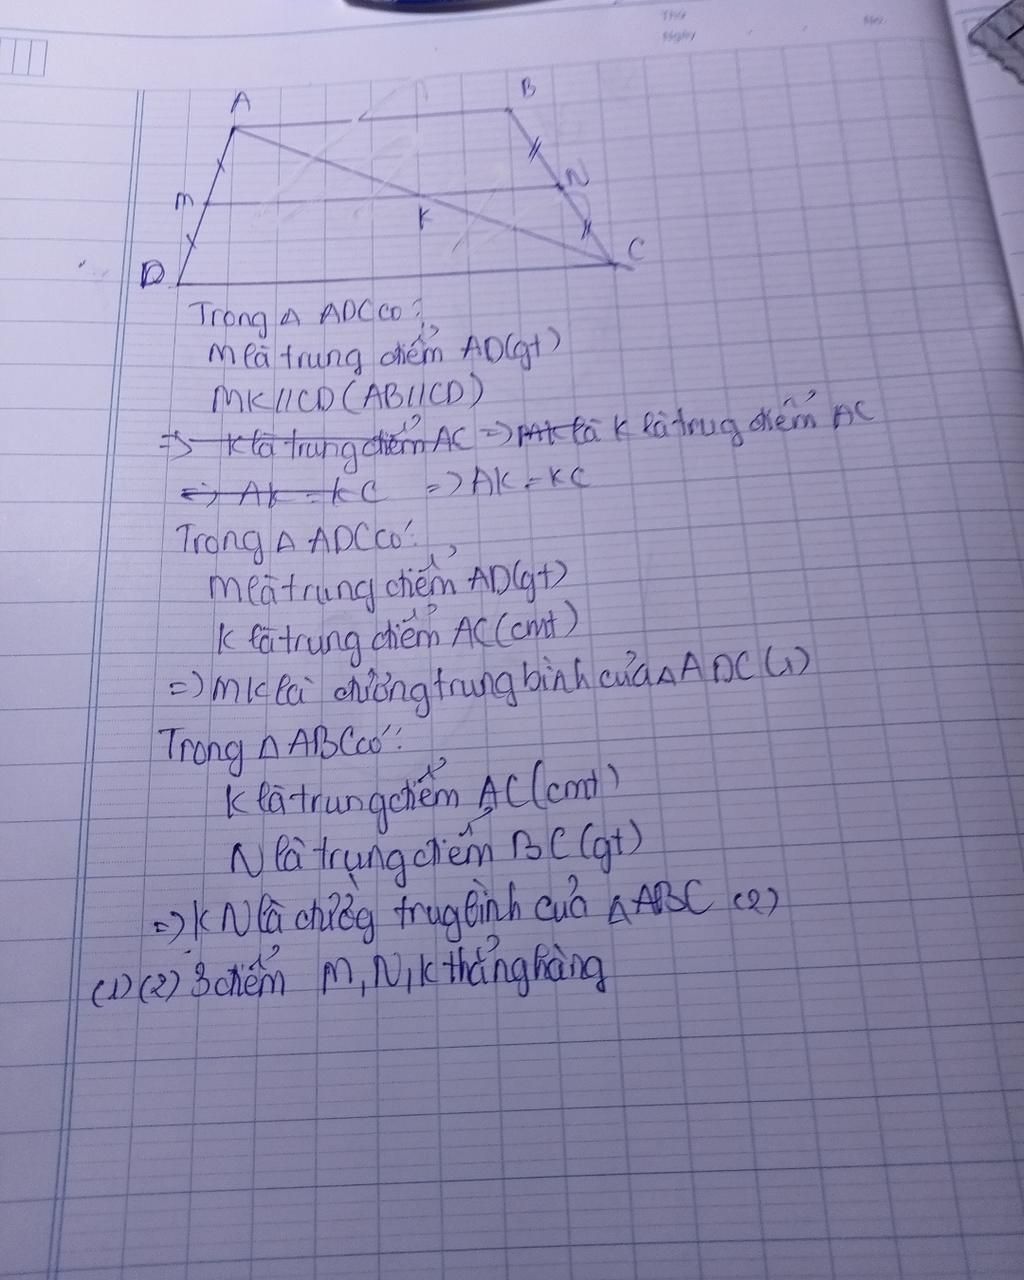 Thứ
Ngày
No.
A
B
M
N
K
D
C
Trong △ ADC có:
M là trung điểm AD(gt)
MK//CD (AB//CD)
=> K là trung điểm AC => MK là K là trug điểm AC
=> AK = KC => AK = KC
Trong △ ADC có:
M là trung điểm AD(gt)
K là trung điểm AC (cmt)
=> MK là đường trung bình của △ ADC (1)
Trong △ ABC có:
K là trung điểm AC (cmt)
N là trung điểm BC (gt)
=> KN là đườg trug bình của △ ABC (2)
(1) (2) 3 điểm M, N, K thẳng hàng